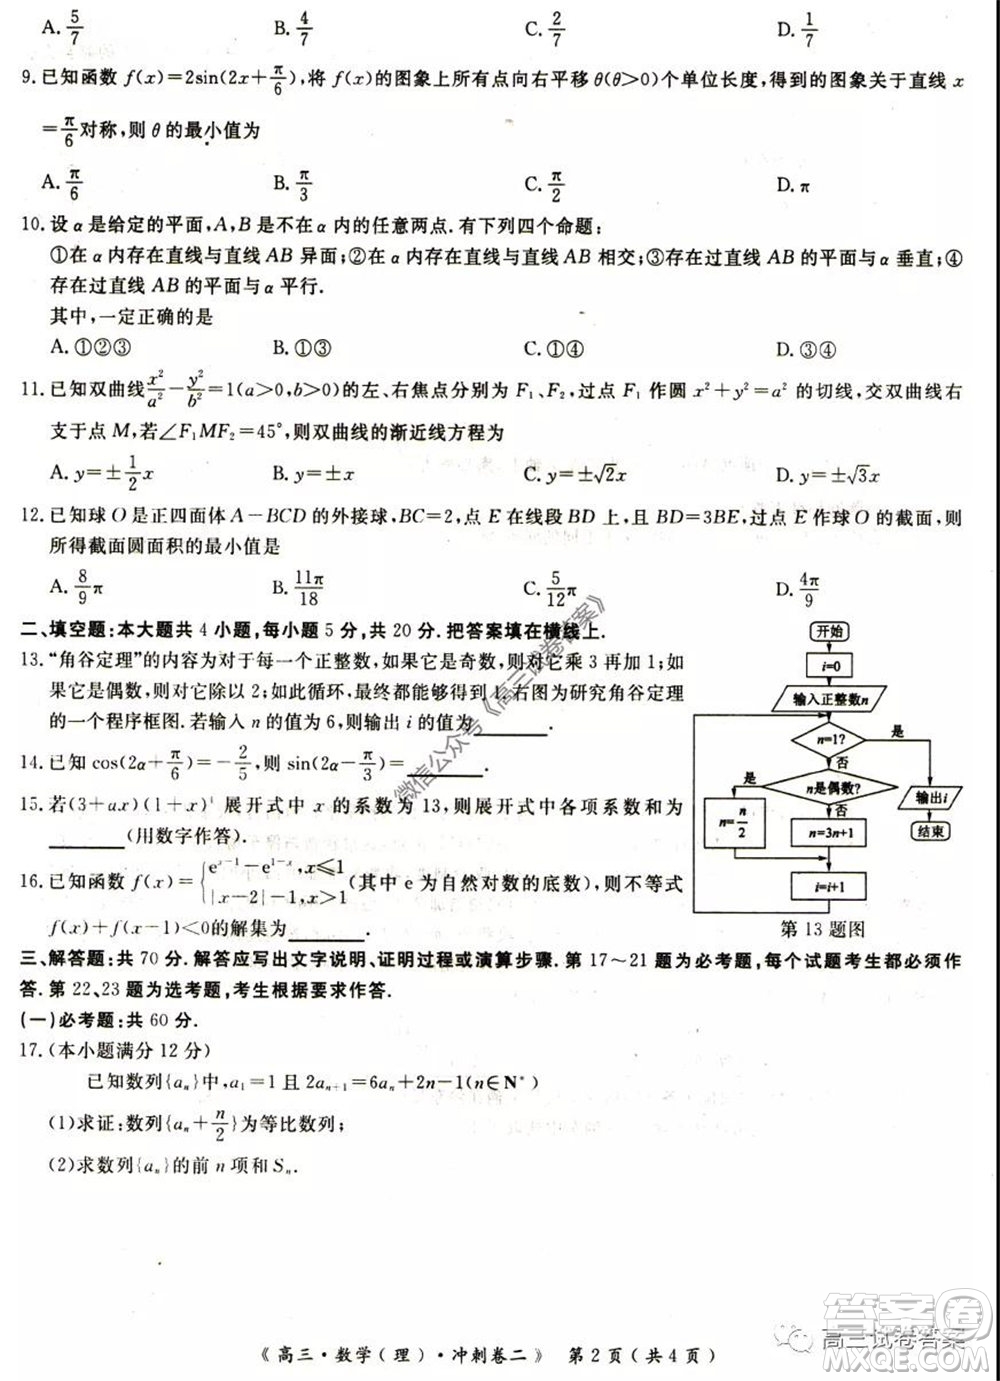 A. 5/7 B. 4/7 C. 2/7 D. 1/7
9. 已知函数 f(x)=2sin(2x+π/6),将 f(x)的图象上所有点向右平移θ(θ>0)个单位长度,得到的图象关于直线 x
=π/6对称,则 θ 的最小值为
A. π/6 B. π/3 C. π/2 D. π
10. 设 α 是给定的平面,A,B 是不在 α 内的任意两点.有下列四个命题:
①在 α 内存在直线与直线 AB 异面;②在 α 内存在直线与直线 AB 相交;③存在过直线 AB 的平面与α 垂直;④
存在过直线 AB 的平面与α 平行.
其中,一定正确的是
A. ①②③ B. ①③ C. ①④ D. ③④
11. 已知双曲线x²/a²-y²/b²=1(a>0,b>0)的左、右焦点分别为 F₁、F₂,过点 F₁ 作圆 x²+y²=a² 的切线,交双曲线右
支于点 M,若∠F₁MF₂=45°,则双曲线的渐近线方程为
A. y=±1/2x B. y=±x C. y=±√2x D. y=±√3x
12. 已知球 O 是正四面体 A-BCD 的外接球,BC=2,点 E 在线段 BD 上,且 BD=3BE,过点 E 作球 O 的截面,则
所得截面圆面积的最小值是
A. 8/9π B. 11π/18 C. 5/12π D. 4π/9
二、填空题:本大题共 4 小题,每小题 5 分,共 20 分.把答案填在横线上.
13. “角谷定理”的内容为对于每一个正整数,如果它是奇数,则对它乘 3 再加 1;如
果它是偶数,则对它除以 2;如此循环,最终都能够得到 1.右图为研究角谷定理
的一个程序框图.若输入 n 的值为 6,则输出 i 的值为________.
14. 已知 cos(2α+π/6)=-2/5,则 sin(2α-π/3)=________.
15. 若(3+ax)(1+x)⁴ 展开式中 x 的系数为 13,则展开式中各项系数和为
________(用数字作答).
16. 已知函数 f(x)={eˣ⁻¹-e¹⁻ˣ,x≤1
|x-2|-1,x>1
(其中 e 为自然对数的底数),则不等式
f(x)+f(x-1)<0的解集为________.
开始
i=0
输入正整数n
n=1?
是
否
n是偶数?
是
否
n=n/2
n=3n+1
i=i+1
输出i
结束
第 13 题图
三、解答题:共 70 分.解答应写出文字说明、证明过程或演算步骤.第 17～21 题为必考题,每个试题考生都必须作
答.第 22、23 题为选考题,考生根据要求作答.
(一)必考题:共 60 分.
17. (本小题满分 12 分)
已知数列{aₙ}中,a₁=1 且 2aₙ₊₁=6aₙ+2n-1(n∈N*)
(1)求证:数列{aₙ+n/2}为等比数列;
(2)求数列{aₙ}的前 n 项和 Sₙ.
《 高三·数学(理)·冲刺卷二 》 第 2 页(共 4 页)
微信公众号《高三试卷答案》
高三试卷答案
答案圈
MXQE.COM